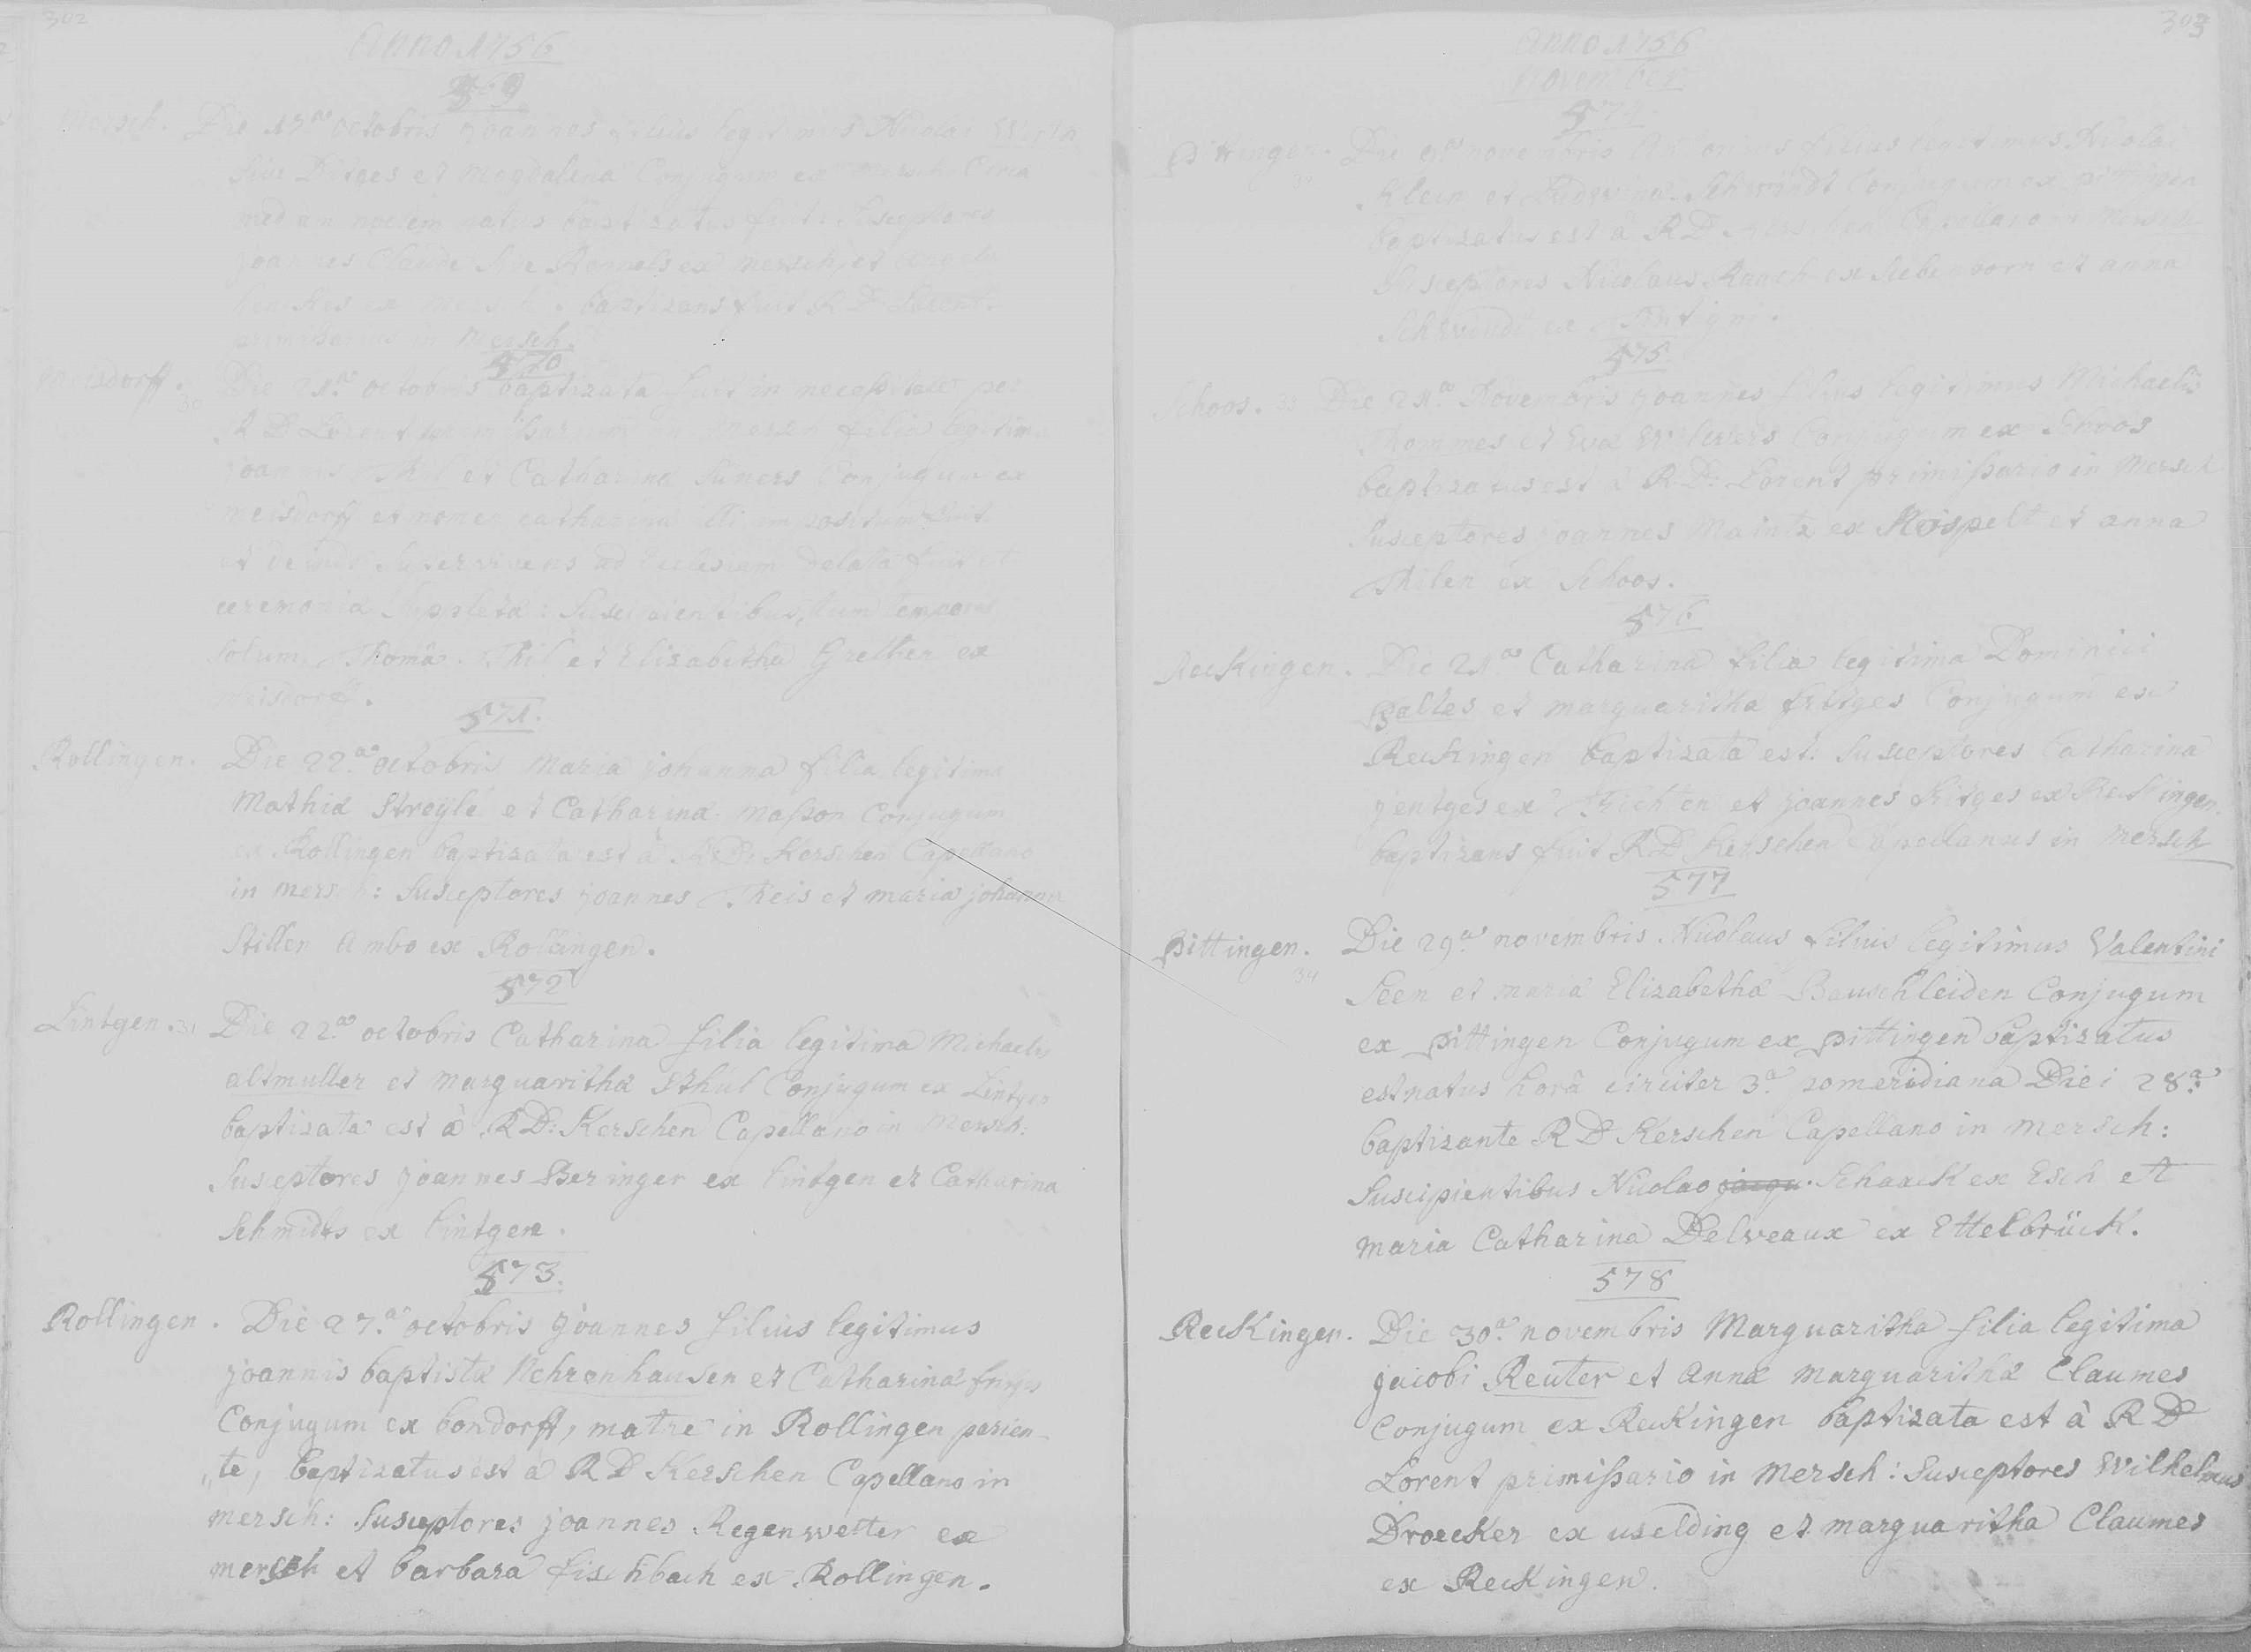 302
Anno 1756
569
Mersch. Die 17.a octobris joannes filius legitimus Nicolai
sive Ditges et Magdalena Conjugum ex Mersch Circa
mediam noctem natus baptizatus fuit: Susceptores
joannes Claude sive Rammels ex mersch, et angela
ex mersch. baptizans fuit R D Lorent
primissarius in Mersch.
570
Meisdorff. 30 Die 21.a octobris baptizata fuit in necessitate per
R D Lorent primissarium in mersch filia legitima
joannis Thil et Catharina Suners Conjugum ex
meisdorff et nomen catharina illi impositum fuit.
et deinde supervivens ad Ecclesiam delata fuit et
ceremonia suppleta: Suscipientibus, tum temporis
solum, Thomâ Thil et Elizabetha Grethen ex
Meisdorff.
571.
Rollingen. Die 22.a octobris Maria johanna filia legitima
Mathia Streÿle et Catharina masson Conjugum
ex Rollingen baptizata est à R.D. Kerschen Capellano
in mersch: Susceptores joannes Theis et maria johanna
Stiller Ambo ex Rollingen.
572
Lintgen. 31 Die 22.a octobris Catharina filia legitima Michaelis
altmuller et marguaritha Sthül Conjugum ex Lintgen
baptizata est à R D: Kerschen Capellano in Mersch:
Susceptores joannes Beringer ex lintgen et Catharina
Schmidts ex lintgen.
573.
Rollingen. Die 27.a octobris joannes filius legitimus
joannis baptista Nehrenhausen et Catharina
Conjugum ex bondorff, matre in Rollingen parien-
„te, baptizatus est à R D Kerschen Capellano in
mersch: Susceptores joannes Regenwetter ex
mersch et barbara fischbach ex Rollingen.
303
Anno 1756
November
574.
Pittingen. Die 9.a novembris Antonius filius legitimus Nicolai
Klein et Ludovina Schwindt Conjugum ex pittingen
baptizatus est à R D Kerschen Capellano in Mersch
Susceptores Nicolaus Rausch ex Siebenborn et anna
Schwindt ex
575.
Schoos. 33 Die 21.a Novembris joannes filius legitimus Michaelis
Thommes et Eva Conjugum ex Schoos
baptizatus est à R.D: Lorent primissario in Mersch
Susceptores joannes Maintz ex Köspelt et anna
Thilen ex Schoos.
576
Reckingen. Die 21.a Catharina filia legitima Dominici
Salles et marguaritha fritges Conjugum ex
Reckingen baptizata est: Susceptores Catharina
jentges ex Richten et joannes fritges ex Reckingen.
baptizans fuit R D Kerschen Capellanus in Mersch
577
Pittingen. 34 Die 29.a novembris Nicolaus filius legitimus Valentini
Seen et maria Elizabetha Bauschleiden Conjugum
ex pittingen Conjugum ex pittingen baptizatus
est natus horâ circiter 3.a pomeridiana Diei 28.a
baptizante R D Kerschen Capellano in mersch:
Suscipientibus Nicolao Schaack ex Esch et
maria Catharina Delveaux ex Ettelbrück.
578
Reckingen. Die 30.a novembris Marguaritha filia legitima
jacobi Reuter et Anna marguaritha Claumes
Conjugum ex Reckingen baptizata est à R D
Lorent primissario in mersch: Susceptores Wilhelmus
Droecker ex uselding et marguaritha Claumes
ex Reckingen.